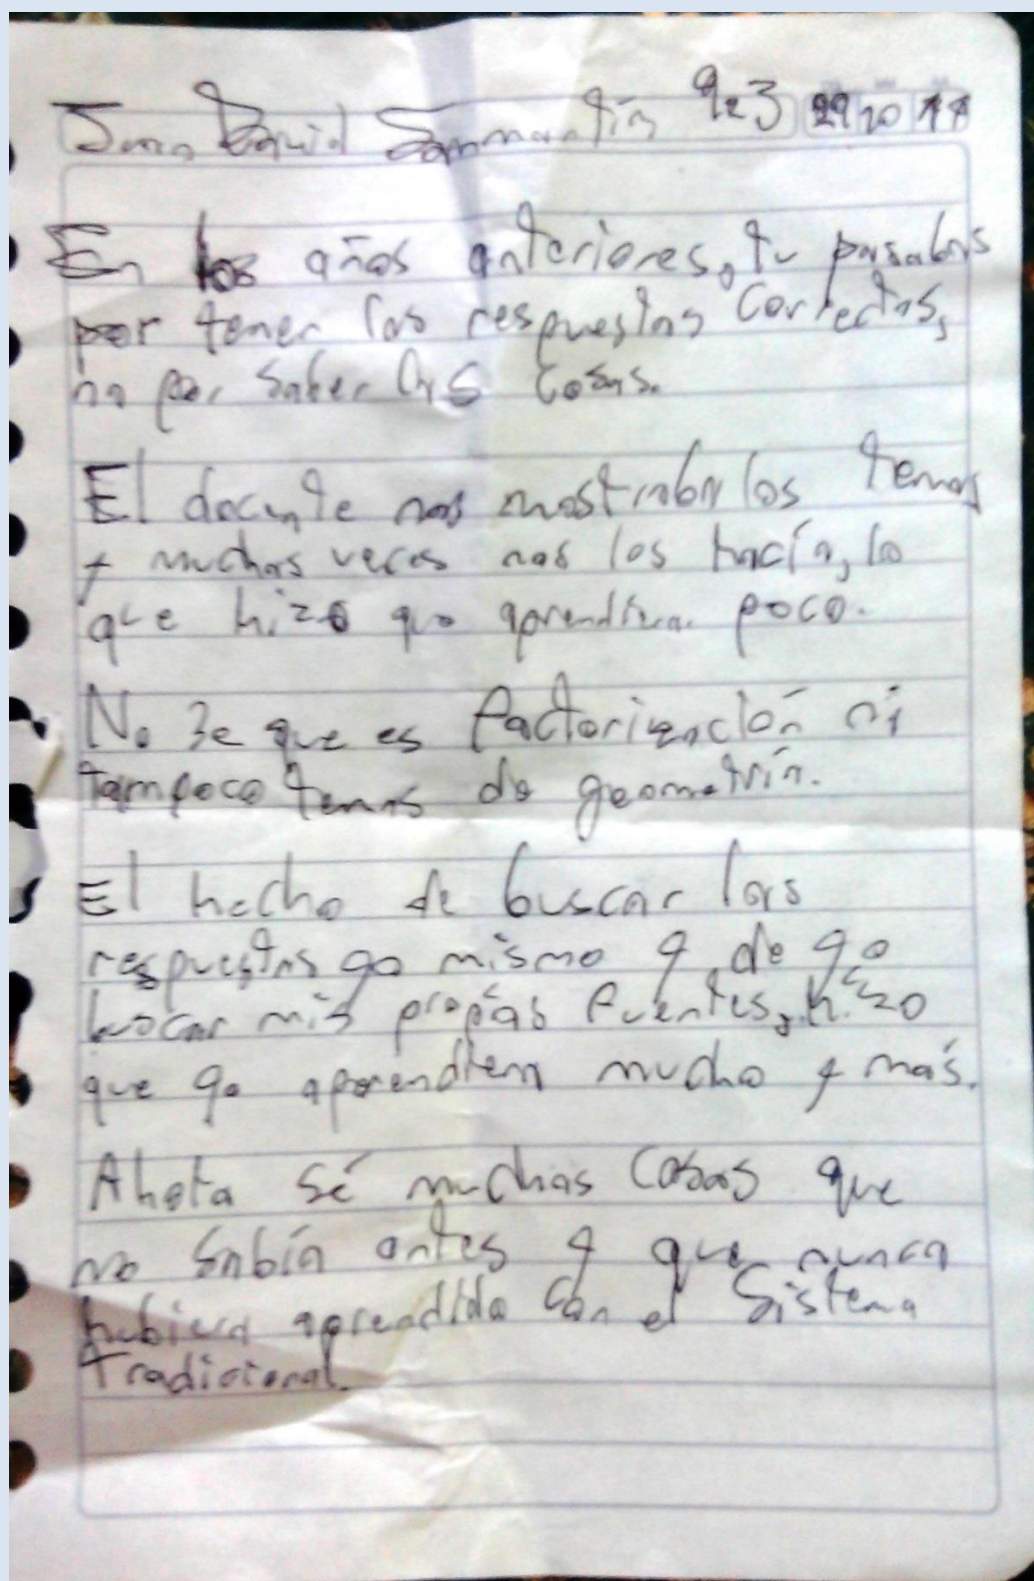 Juan David Sanmartín 9-3 29 10 11
En los años anteriores, tu pasabas
por tener las respuestas correctas,
no por saber las cosas.
El docente nos mostraba los temas
y muchas veces nos los hacía, lo
que hizo que aprendiera poco.
No se que es factorización ni
tampoco temas de geometría.
El hecho de buscar las
respuestas yo mismo y de yo
buscar mis propias fuentes, hizo
que yo aprendiera mucho y más.
Ahora sé muchas cosas que
no sabía antes y que nunca
hubiera aprendido con el sistema
tradicional.